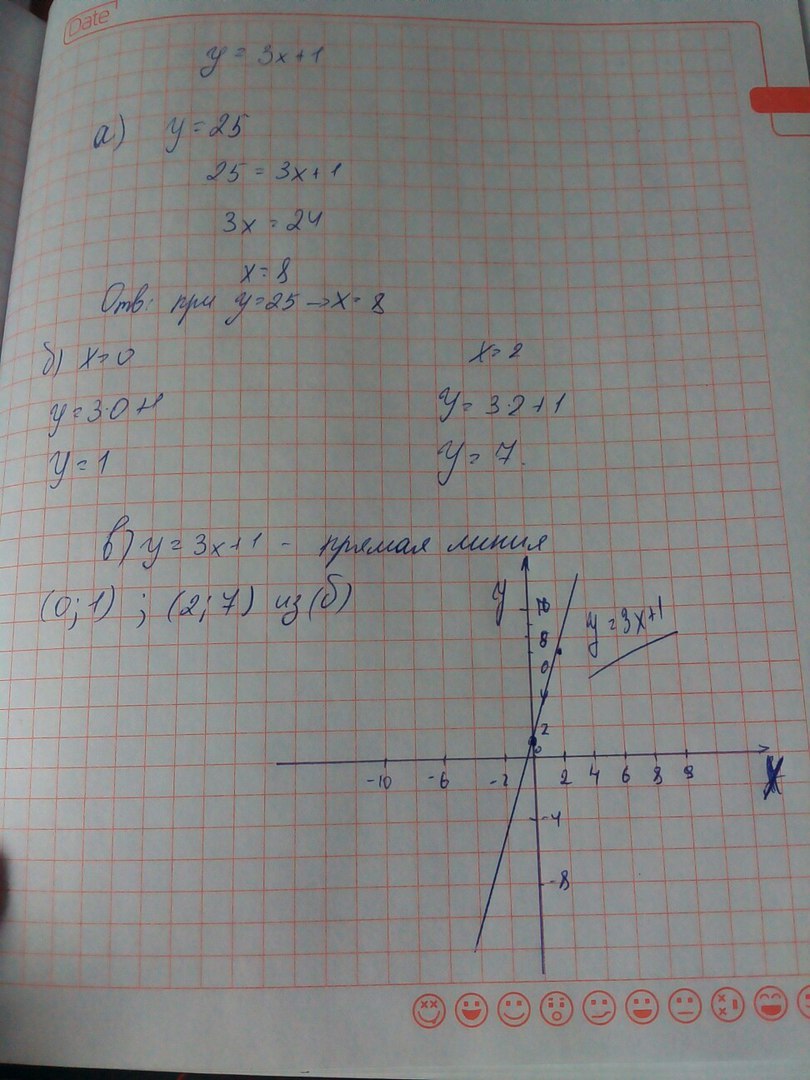 Date
y = 3x+1
а) y = 25
25 = 3x+1
3x = 24
x = 8
Отв: при y=25 → x = 8
б) x = 0
y = 3·0+1
y = 1
x = 2
y = 3·2+1
y = 7.
в) y = 3x+1 - прямая линия
(0; 1) ; (2; 7) из (б)
y
10
8
6
4
2
0
y = 3x+1
-10 -6 -2 2 4 6 8 9
x
-4
-8